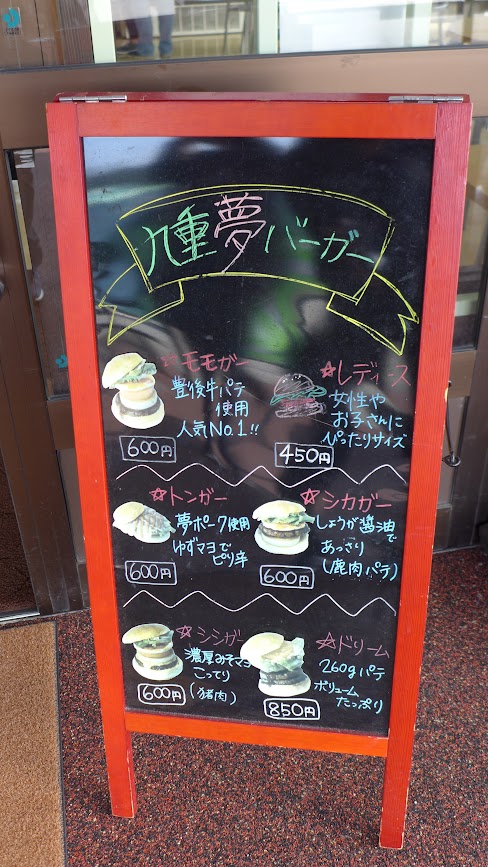 九重夢バーガー
☆モモガー
豊後牛パテ
使用
人気No.1!!
600円
☆レディース
女性や
お子さんに
ぴったりサイズ
450円
☆トンガー
夢ポーク使用
ゆずマヨで
ピリ辛
600円
☆シカガー
しょうが醤油で
あっさり
(鹿肉パテ)
600円
☆シシガー
濃厚みそマヨ
こってり
(猪肉)
600円
☆ドリーム
260gパテ
ボリューム
たっぷり
850円